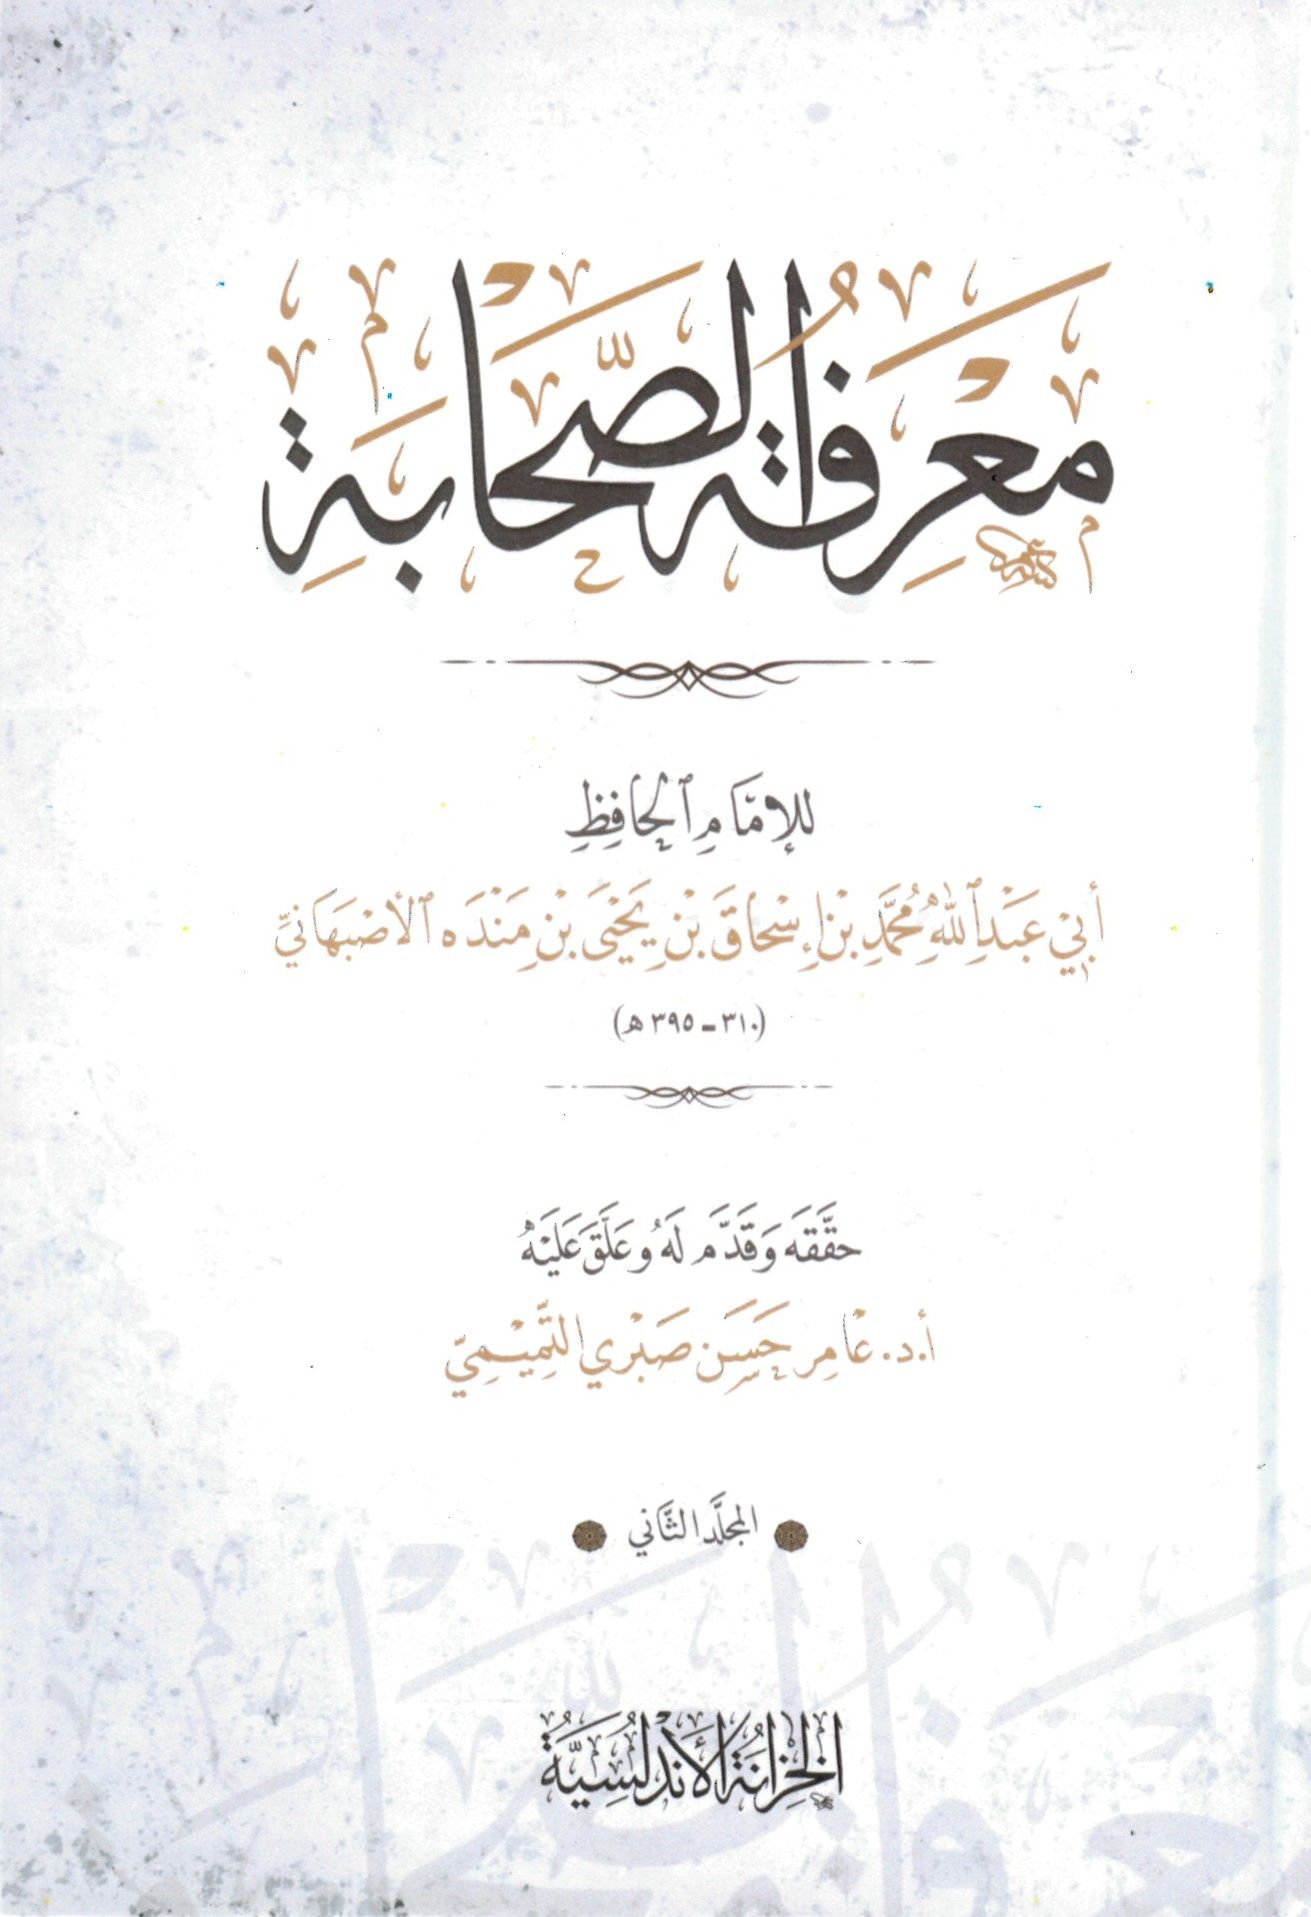 مَعرِفَةُ الصَّحَابَةِ
للإِمَامِ الحَافِظِ
أَبِي عَبْدِ اللهِ مُحَمَّدِ بْنِ إِسْحَاقَ بْنِ يَحْيَى بْنِ مَنْدَه الأَصْبَهَانِيِّ
(٣١٠ - ٣٩٥ هـ)
حقَّقَهُ وَقَدَّمَ لَهُ وعَلَّقَ عَلَيْهُ
أ.د. عَامِر حَسَن صَبْرِي التَّمِيْمِيّ
المجلَّد الثَّاني
الخِزَانَةُ الأَنْدَلُسِيَّةُ